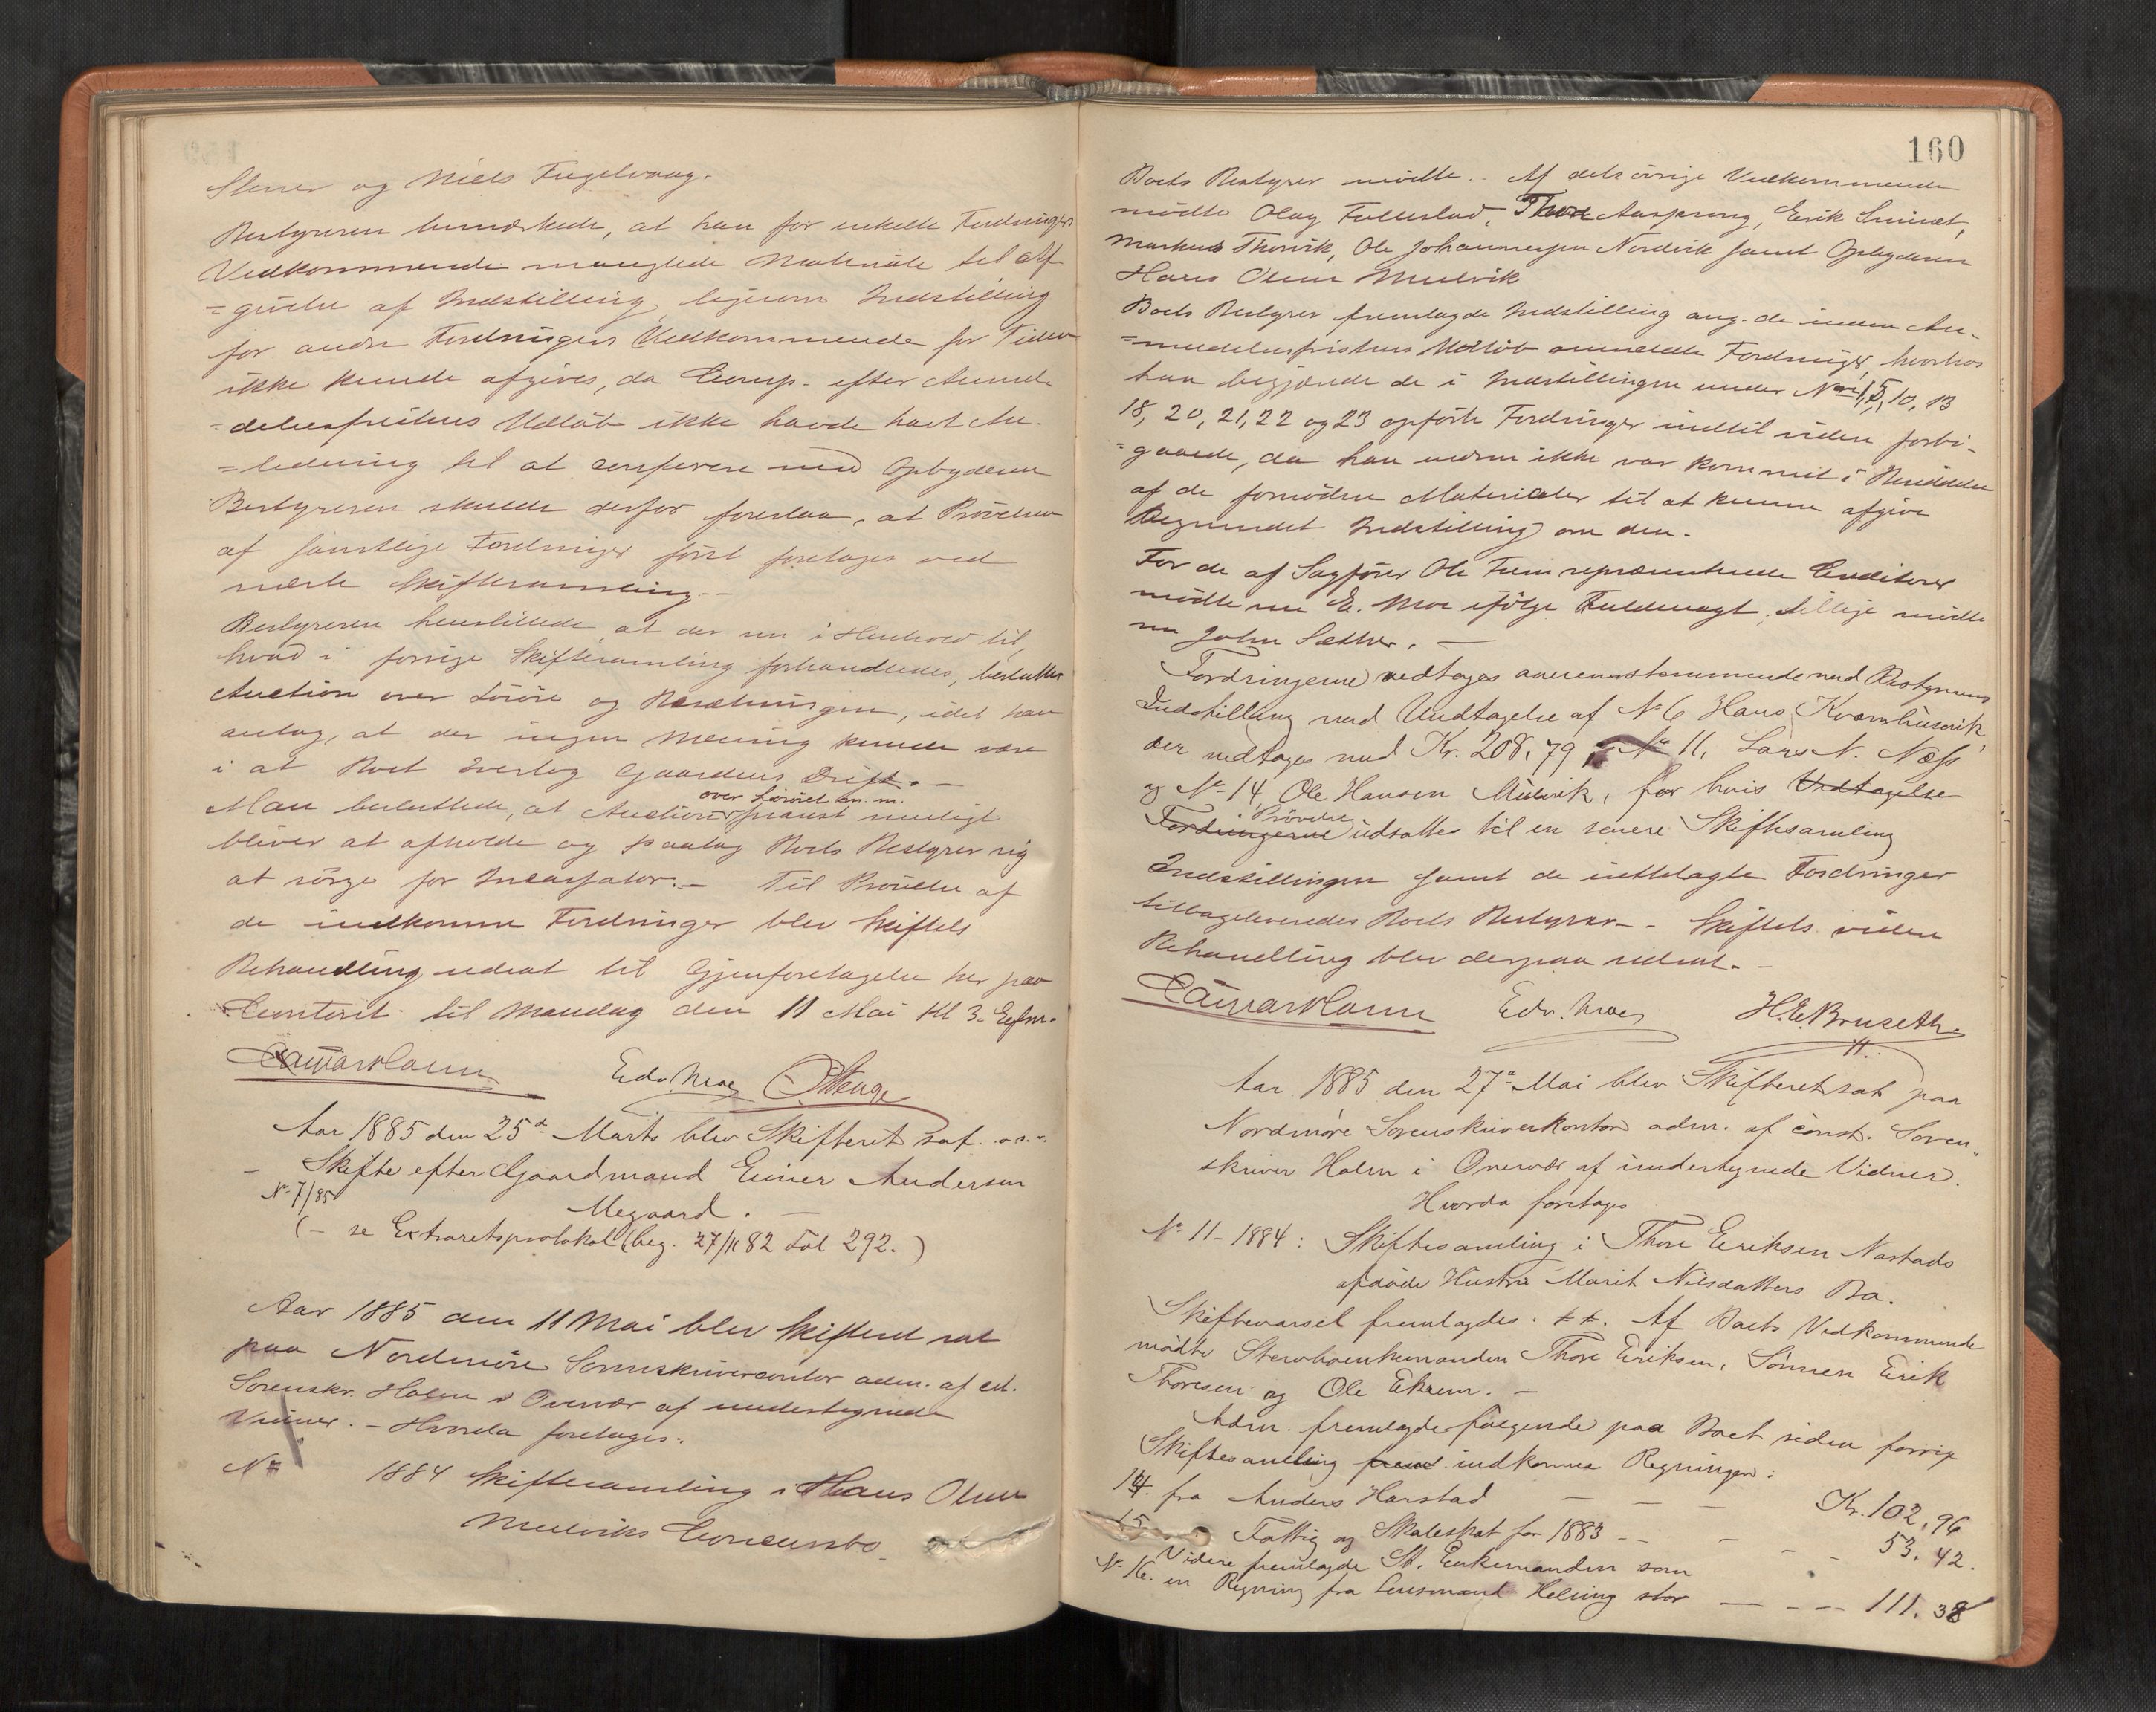 Stener og Niels Fugelvaag.
Bestyreren bemærkede, at han for enkelte Fordringers
Vedkommende manglede Materiale til Af-
=givelse af Indstilling, ligesom Indstilling
for andre Fordringers Vedkommende for Tiden
ikke kunde afgives, da Comp. efter Anmel-
=delsesfristens Udløb ikke havde havt An-
=ledning til at conferere med Opbyderen
Bestyreren skulde derfor foreslaa, at Prøvelsen
af samtlige Fordringer først foretages ved
næste Skiftesamling.-
Bestyreren henstillede, at der nu i Henhold til,
hvad i forrige Skiftesamling forhandledes, besluttes
Auction over Løsøre og Besætningen, idet han
antog, at der ingen Mening kunde være
i at Boet overtog Gaardens Drift. -
over Løsøret m. m.
Man besluttede, at Auction snarest muligt
bliver at afholde og paatog Boets Bestyrer sig
at sørge for Incassator. - Til Prøvelse af
de indkomne Fordringer blev Skiftets
Behandling udsat til Gjenforetagelse her paa
Contoret til Mandag den 11 Mai Kl 3. Eftm.
Edv. Moe
Aar 1885 den 25de Marts blev Skifteret sat. o.s.v.
- Skifte efter Gaardmand Einer Andersen
No 7/85
Megaard. -
(- se Extraretsprotokol (beg. 27/11 82 Fol 292.)
Aar 1885 den 11 Mai blev Skifteret sat
paa Nordmøre Sorenskrivercontor adm. af cst.
Sorenskr. Holm i Overvær af undertegnede
Vidner. - Hvorda foretages:
No 1884 Skiftesamling i Hans Olsen
Mulviks Concursbo.
160
Boets Bestyrer mødte. - Af de øvrige Vedkommende
mødte Olay Fullestad, Thore Aasprong, Erik Smisæt,
Markus Thorvik, Ole Johannessen Nordvik samt Opbyderen
Hans Olsen Mulvik
Boets Bestyrer fremlagde Indstilling ang. de inden An-
=meldelsesfristens Udløb anmeldte Fordringer, hvorhos
han begjærede de i Indstillingen under No 1, 5, 10, 13
18, 20, 21, 22 og 23 opførte Fordringer indtil videre forbi-
=gaaede, da han endnu ikke var kommet i Besiddelse
af de fornødne Materialer til at kunne afgive
begrundet Indstilling om dem.
For de af Sagfører Ole Fein repræsenterede Creditorer
mødte nu E. Moe ifølge Fuldmagt, tillige mødte
nu John Sæther. -
Fordringerne vedtoges overensstemmende med Bestyrerens
Indstilling med Undtagelse af No 6 Hans Kvernhusvik,
der vedtoges med Kr. 208,79, No 11, Lars N. Næss
og No 14, Ole Hansen Mulvik, for hvis Vedtagelse
Prøvelse
Fordringerne udsattes til en senere Skiftesamling
Indstillingen samt de indtelagte Fordringer
tilbageleveredes Boets Bestyrer. - Skiftets videre
Behandling blev derpaa udsat. -
Edv. Moe H. E. Bruseth
Aar 1885 den 27de Mai blev Skifteret sat paa
Nordmøre Sorenskriverkontor adm. af const. Soren-
skriver Holm i Overvær af undertegnede Vidner.
Hvorda foretages
No 11 - 1884: Skiftesamling i Thore Eeriksen Nastads
afdøde Hustru Marit Nilsdatters Bo.
Skiftevarsel fremlagdes. Af Boets Vedkommende
mødte Stervboenkemanden Thore Eeriksen, Sønnen Erik
Thoresen og Ole Ekrem. -
Adm. fremlagde følgende paa Boet siden forrige
Skiftesamling indkomne Regninger:
14. fra Anders Harstad - - - Kr. 102,96
15 Fattig og Skoleskat for 1883 - - - - 53,42.
Videre fremlagde St. Enkemanden som
No 16. en Regning fra Lensmand Helsing stor - - - 111.38